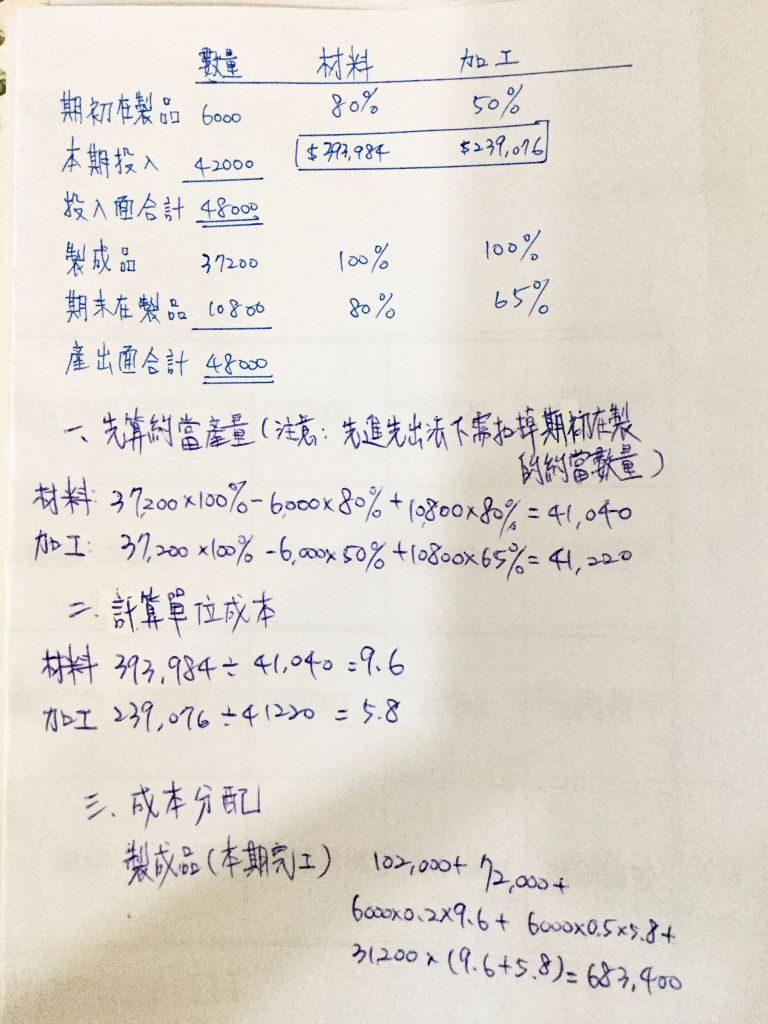 數量 材料 加工
期初在製品 6000 80% 50%
本期投入 42000 $393,984 $239,076
投入面合計 48000
製成品 37200 100% 100%
期末在製品 10800 80% 65%
產出面合計 48000
一、先算約當產量(注意:先進先出法下需扣掉期初在製
的約當數量)
材料: 37,200×100%-6,000×80%+10,800×80%=41,040
加工: 37,200×100%-6,000×50%+10800×65%=41,220
二、計算單位成本
材料 393,984÷41,040=9.6
加工 239,076÷41220=5.8
三、成本分配
製成品(本期完工) 102,000+72,000+
6000×0.2×9.6+6000×0.5×5.8+
31,200×(9.6+5.8)=683,400